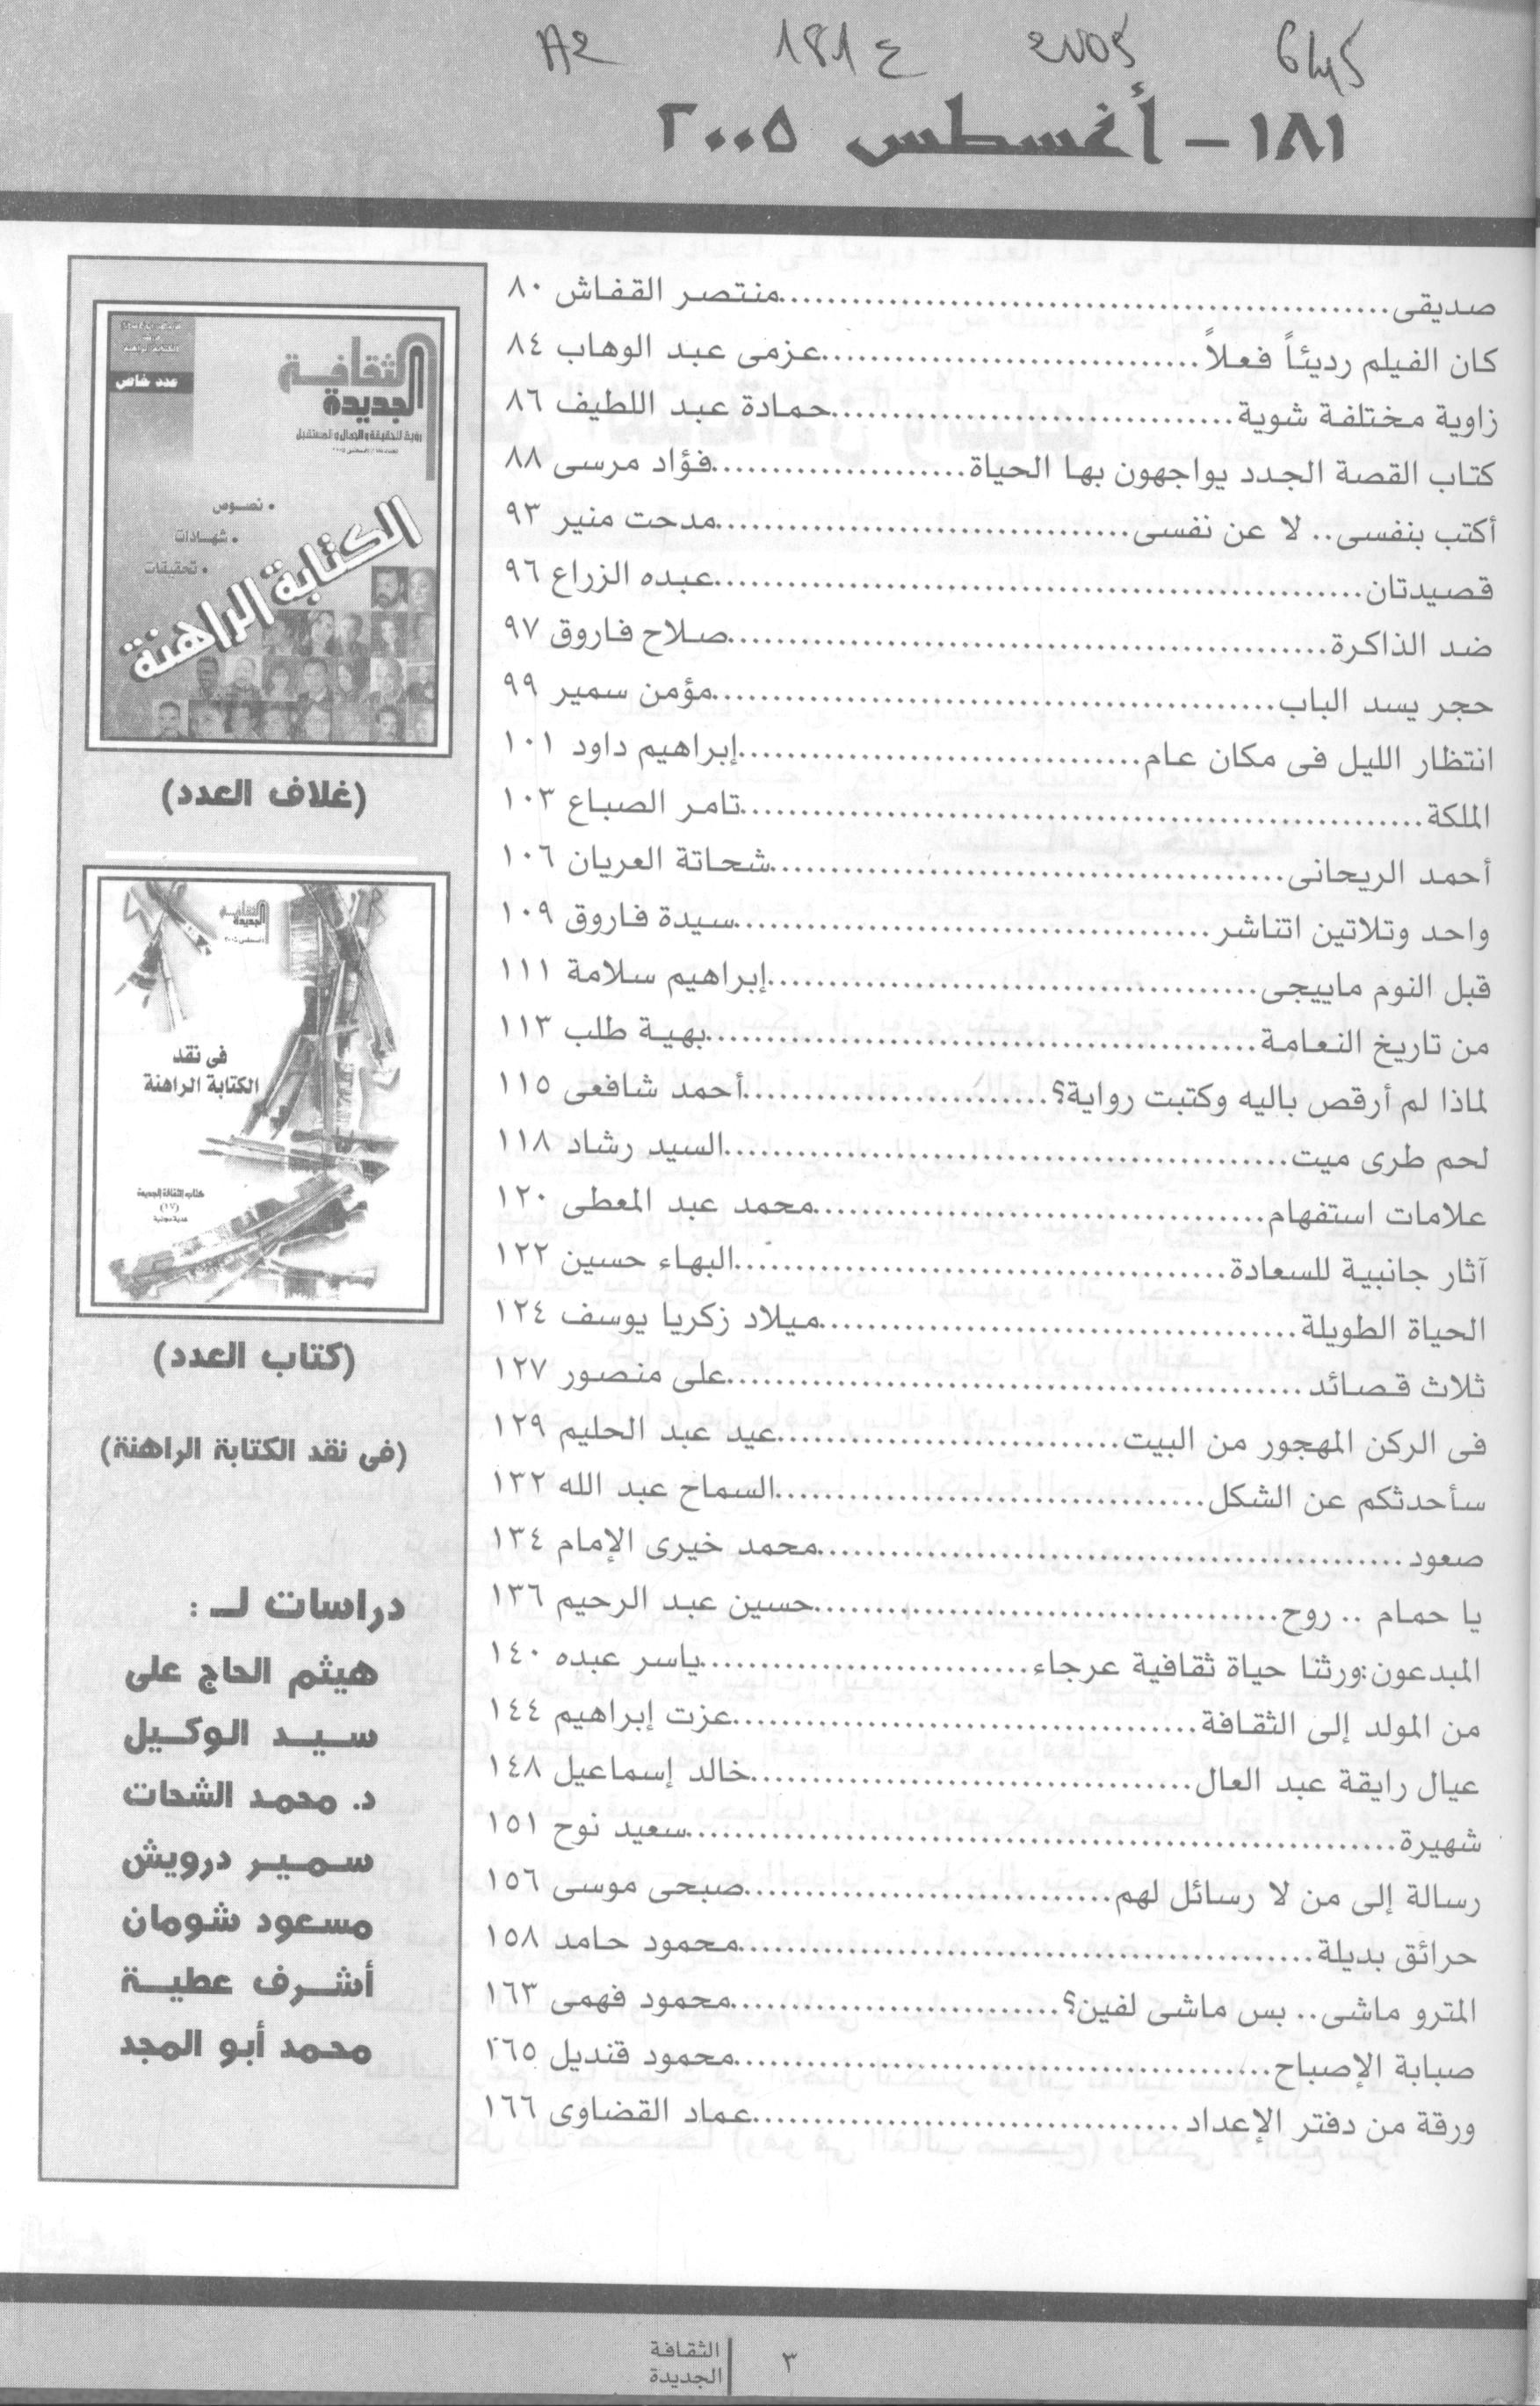 A2 181 ع 2005 645
١٨١ – أغسطس ٢٠٠٥
صديقى..................................................منتصر القفاش ٨٠
كان الفيلم رديئاً فعلاً................................عزمى عبد الوهاب ٨٤
زاوية مختلفة شوية..................................حمادة عبد اللطيف ٨٦
كتاب القصة الجدد يواجهون بها الحياة.....................فؤاد مرسى ٨٨
أكتب بنفسى.. لا عن نفسى..................................مدحت منير ٩٣
قصيدتان......................................................عبده الزراع ٩٦
ضد الذاكرة..................................................صلاح فاروق ٩٧
حجر يسد الباب...............................................مؤمن سمير ٩٩
انتظار الليل فى مكان عام.................................إبراهيم داود ١٠١
الملكة........................................................تامر الصباع ١٠٣
أحمد الريحانى..........................................شحاتة العريان ١٠٦
واحد وتلاتين اتناشر.......................................سيدة فاروق ١٠٩
قبل النوم ماييجى........................................إبراهيم سلامة ١١١
من تاريخ النعامة.............................................بهية طلب ١١٣
لماذا لم أرقص باليه وكتبت رواية؟.........................أحمد شافعى ١١٥
لحم طرى ميت...............................................السيد رشاد ١١٨
علامات استفهام.....................................محمد عبد المعطى ١٢٠
آثار جانبية للسعادة.........................................البهاء حسين ١٢٢
الحياة الطويلة.......................................ميلاد زكريا يوسف ١٢٤
ثلاث قصائد................................................على منصور ١٢٧
فى الركن المهجور من البيت............................عيد عبد الحليم ١٢٩
سأحدثكم عن الشكل...................................السماح عبد الله ١٣٢
صعود................................................محمد خيرى الإمام ١٣٤
يا حمام .. روح......................................حسين عبد الرحيم ١٣٦
المبدعون:ورثنا حياة ثقافية عرجاء...........................ياسر عبده ١٤٠
من المولد إلى الثقافة......................................عزت إبراهيم ١٤٤
عيال رايقة عبد العال....................................خالد إسماعيل ١٤٨
شهيرة..........................................................سعيد نوح ١٥١
رسالة إلى من لا رسائل لهم..............................صبحى موسى ١٥٦
حرائق بديلة...............................................محمود حامد ١٥٨
المترو ماشى.. بس ماشى لفين؟...........................محمود فهمى ١٦٣
صبابة الإصباح............................................محمود قنديل ١٦٥
ورقة من دفتر الإعداد...................................عماد القضاوى ١٦٦
عدد خاص
الثقافية
الجديدة
رؤية للحقيقة والجمال والمستقبل
• نصوص
• شهادات
• تحقيقات
الكتابة الراهنة
(غلاف العدد)
الثقافية
الجديدة
فى نقد
الكتابة الراهنة
كتاب الثقافة الجديدة
(١٧)
(كتاب العدد)
(فى نقد الكتابة الراهنة)
دراسات لـ :
هيثم الحاج على
سيد الوكيل
د. محمد الشحات
سمير درويش
مسعود شومان
أشرف عطية
محمد أبو المجد
٣
الثقافة
الجديدة